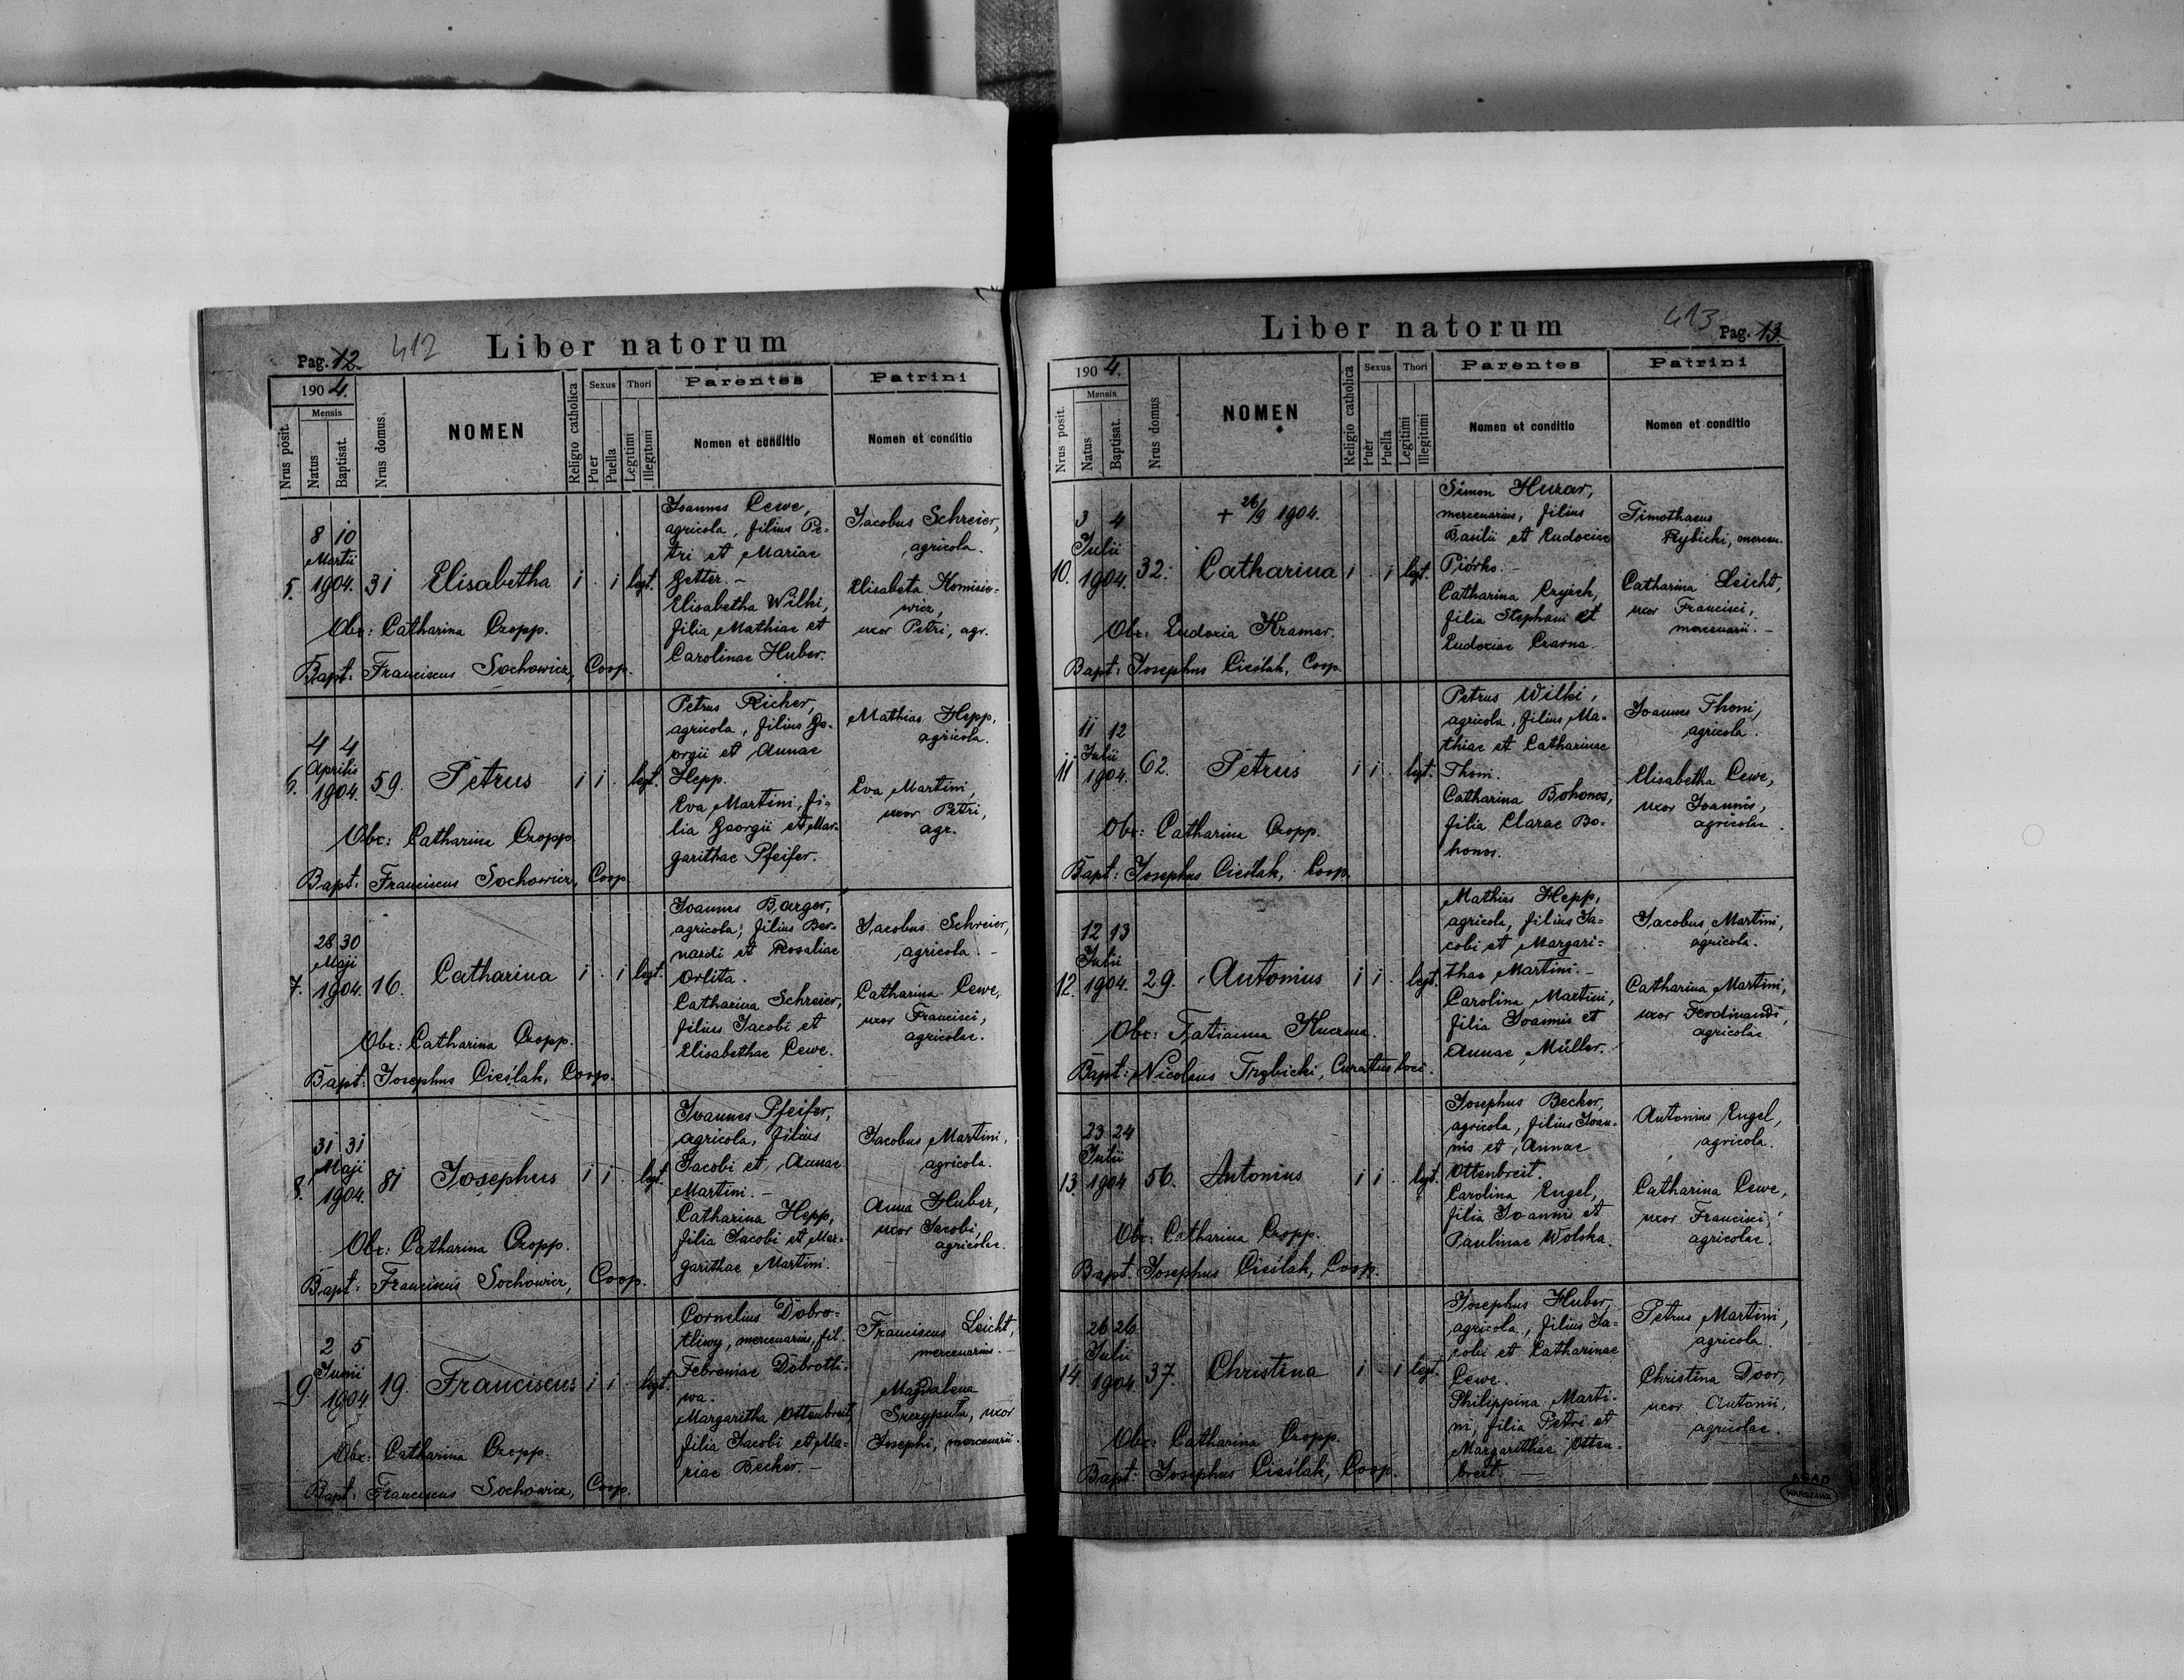 Pag. 12
412
Liber natorum
1904.
Nrus posit.
Mensis
Natus
Baptisat.
Nrus domus.
NOMEN
Religio catholica
Sexus
Puer
Puella
Thori
Legitimi
Illegitimi
Parentes
Nomen et conditio
Patrini
Nomen et conditio
5.
8 10
Martii
1904.
31
Elisabetha
1 . 1 legt.
Obs: Catharina Cropp.
Bapt: Franciscus Sochowicz, Coop.
Joannes Cewe,
agricola, filius Pe-
tri et Mariae
Getter. -
Elisabetha Wilki,
filia Mathiae et
Carolinae Huber.
Jacobus Schreier,
agricola.
Elisabeta Komisie-
wicz,
uxor Petri, agr.
6.
4 4
Aprilis
1904.
59.
Petrus
1 1 . legt.
Obs: Catharina Cropp.
Bapt: Franciscus Sochowicz, Coop.
Petrus Richer,
agricola, filius Ge-
orgii et Annae
Hepp.
Eva Martini, fi-
lia Georgii et Mar-
garithae Pfeifer.
Mathias Hepp,
agricola.
Eva Martini,
uxor Petri,
agr.
7.
28 30
Maji
1904.
16.
Catharina
1 . 1 legt.
Obs: Catharina Cropp.
Bapt: Josephus Cieślak, Coop.
Joannes Barger,
agricola, filius Ber-
nardi et Rosaliae
Orlita.
Catharina Schreier,
filius Jacobi et
Elisabethae Cewe.
Jacobus Schreier,
agricola. -
Catharina Cewe,
uxor Francisci,
agricolae.
8.
31 31
Maji
1904.
81
Josephus
1 1 . legt.
Obs: Catharina Cropp.
Bapt: Franciscus Sochowicz, Coop.
Joannes Pfeifer,
agricola, filius
Jacobi et Annae
Martini. -
Catharina Hepp,
filia Jacobi et Mar-
garithae Martini.
Jacobus Martini,
agricola.
Anna Huber,
uxor Jacobi,
agricolae.
9.
2 5
Junii
1904.
19.
Franciscus
1 1 . legt.
Obs: Catharina Cropp.
Bapt: Franciscus Sochowicz, Coop.
Cornelius Dobro-
tliwy, mercenarius, fil.
Febroniae Dobrotli-
wa.
Margaritha Ottenbreit,
filia Jacobi et Ma-
riae Becker. -
Franciscus Leicht,
mercenarius. -
Magdalena
uxor
Josephi, mercenarii.
Liber natorum
413
Pag. 13.
1904.
Nrus posit.
Mensis
Natus
Baptisat.
Nrus domus
NOMEN
Religio catholica
Sexus
Puer
Puella
Thori
Legitimi
Illegitimi
Parentes
Nomen et conditio
Patrini
Nomen et conditio
10.
3 4
Julii
1904.
32.
+ 26/9 1904.
Catharina
1 . 1 legt.
Obs: Eudoxia Kramar.
Bapt: Josephus Cieślak, Coop.
Simon Huzar,
mercenarius, filius
Basilii et Eudociae
Piórko. -
Catharina
filia Stephani et
Eudociae Czarna.
Timothaeus
Rybicki, mercen.
Catharina Leicht,
uxor Francisci,
mercenarii. -
11
11 12
Julii
1904.
62.
Petrus
1 1 . legt.
Obs: Catharina Cropp.
Bapt: Josephus Cieślak, Coop.
Petrus Wilki,
agricola, filius Ma-
thiae et Catharinae
Thoni.
Catharina Bohonos,
filia Clarae Bo-
honos.
Joannes Thoni,
agricola.
Elisabetha Cewe,
uxor Joannis,
agricolae.
12.
12 13
Julii
1904.
29.
Antonius
1 1 . legt.
Obs: Tatianna Kuczma.
Bapt: Nicolaus Trzbicki, Curatus loci.
Mathias Hepp,
agricola, filius Ja-
cobi et Margari-
thae Martini. -
Carolina Martini,
filia Joannis et
Annae Müller.
Jacobus Martini,
agricola.
Catharina Martini,
uxor Ferdinandi,
agricolae.
13.
23 24
Julii
1904
56.
Antonius
1 1 . legt.
Obs: Catharina Cropp.
Bapt. Josephus Cieślak, Coop.
Josephus Becker,
agricola, filius Joan-
nis et Annae
Ottenbreit.
Carolina Engel,
filia Joannis et
Paulinae Wolska.
Antonius Engel,
agricola.
Catharina Cewe,
uxor Francisci,
agricolae.
14.
26 26
Julii
1904.
37.
Christina
1 . 1 legt.
Obs: Catharina Cropp.
Bapt: Josephus Cieślak, Coop.
Josephus Huber,
agricola, filius Ja-
cobi et Catharinae
Cewe.
Philippina Marti-
ni, filia Petri et
Margarithae Otten-
breit. -
Petrus Martini,
agricola.
Christina Door,
uxor Antonii,
agricolae.
AGAD
WARSZAWA